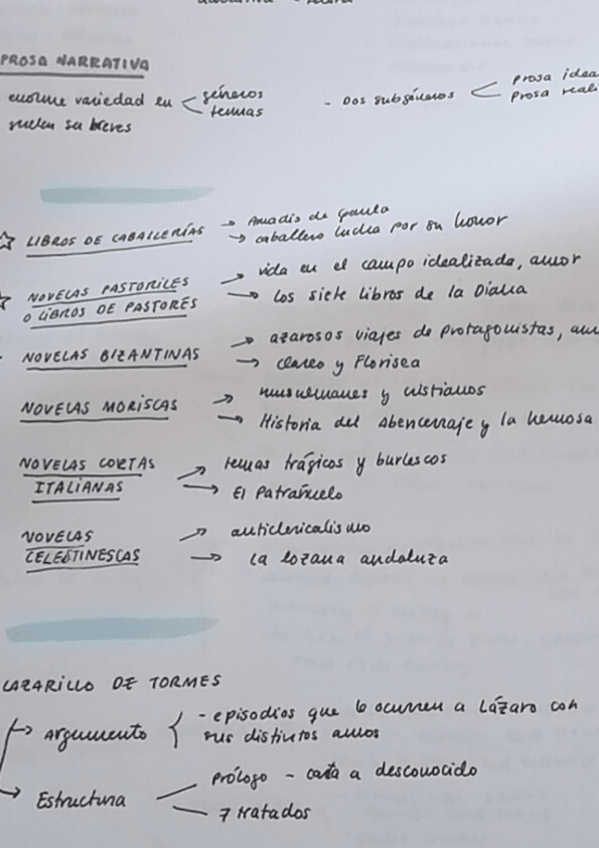 PROSA NARRATIVA
enorme variedad en géneros
temas
suelen ser breves
- Dos subgéneros prosa idea
prosa reali
LIBROS DE CABALLERÍAS → Amadís de Gaula
→ caballero lucha por su honor
NOVELAS PASTORILES → vida en el campo idealizada, amor
O LIBROS DE PASTORES → Los siete libros de la Diana
NOVELAS BIZANTINAS → azarosos viajes de protagonistas,
→ Clareo y Florisea
NOVELAS MORISCAS → musulmanes y cristianos
→ Historia del Abencerraje y la hermosa
NOVELAS CORTAS → temas trágicos y burlescos
ITALIANAS → El Patrañuelo
NOVELAS → anticlericalismo
CELESTINESCAS → La lozana andaluza
LAZARILLO DE TORMES
→ Argumento { - episodios que le ocurren a Lázaro con
sus distintos amos
→ Estructura Prólogo - carta a desconocido
7 tratados